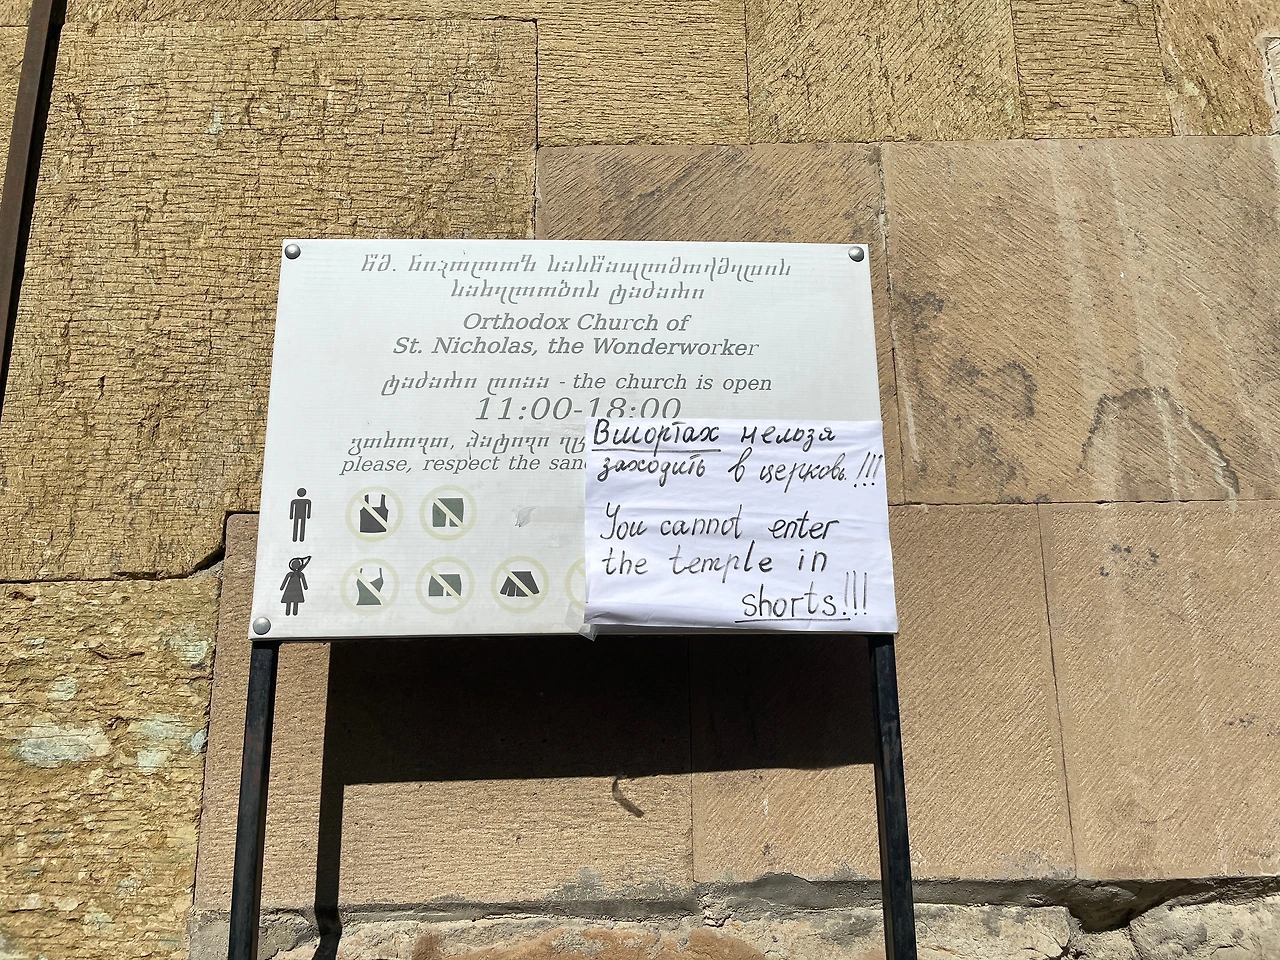 წმ. ნიკოლოზ სასწაულთმოქმედის
სახელობის ტაძარი
Orthodox Church of
St. Nicholas, the Wonderworker
ტაძარი ღიაა - the church is open
11:00-18:00
გთხოვთ, პატივი
please, respect the
Вшортах нельзя
заходить в церковь!!!
You cannot enter
the temple in
shorts!!!